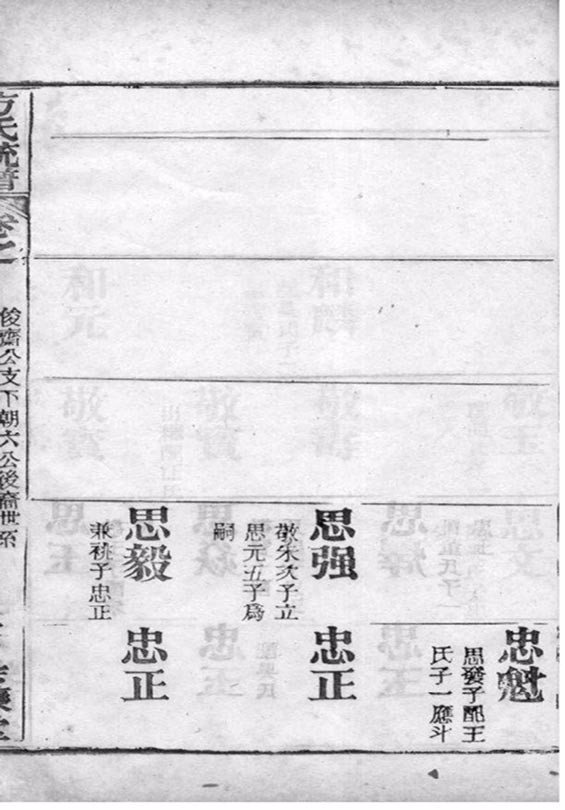 忠魁
思發子配王
氏子一應斗
思强
敬朱次子立
思元五子爲
嗣
忠正
思毅
兼祧子忠正
忠正
方氏統譜
卷之一
俊齋公支下朝六公後裔世系